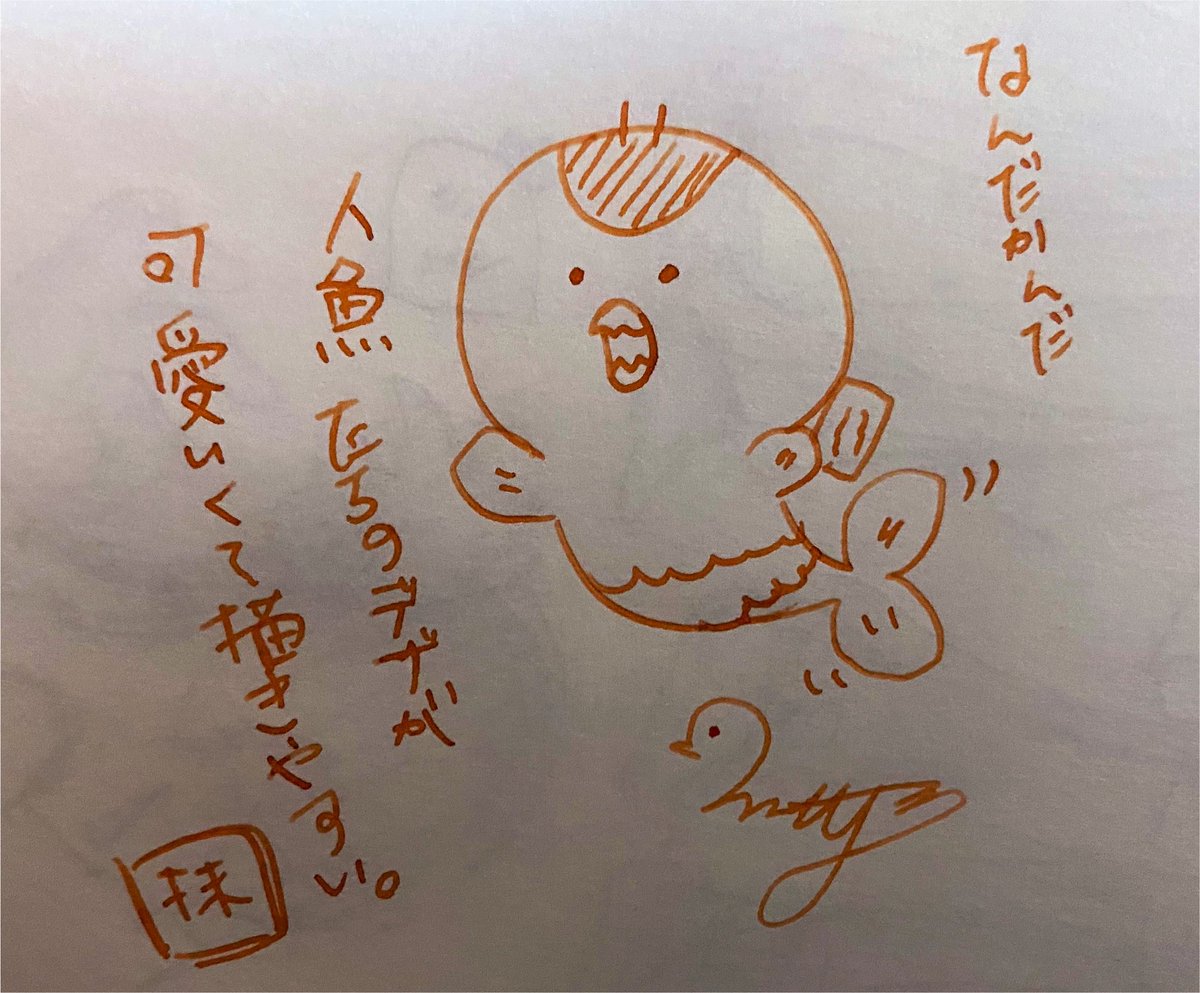 なんだかんだ
人魚たちのデザが
可愛いくて描きやすい。
抹